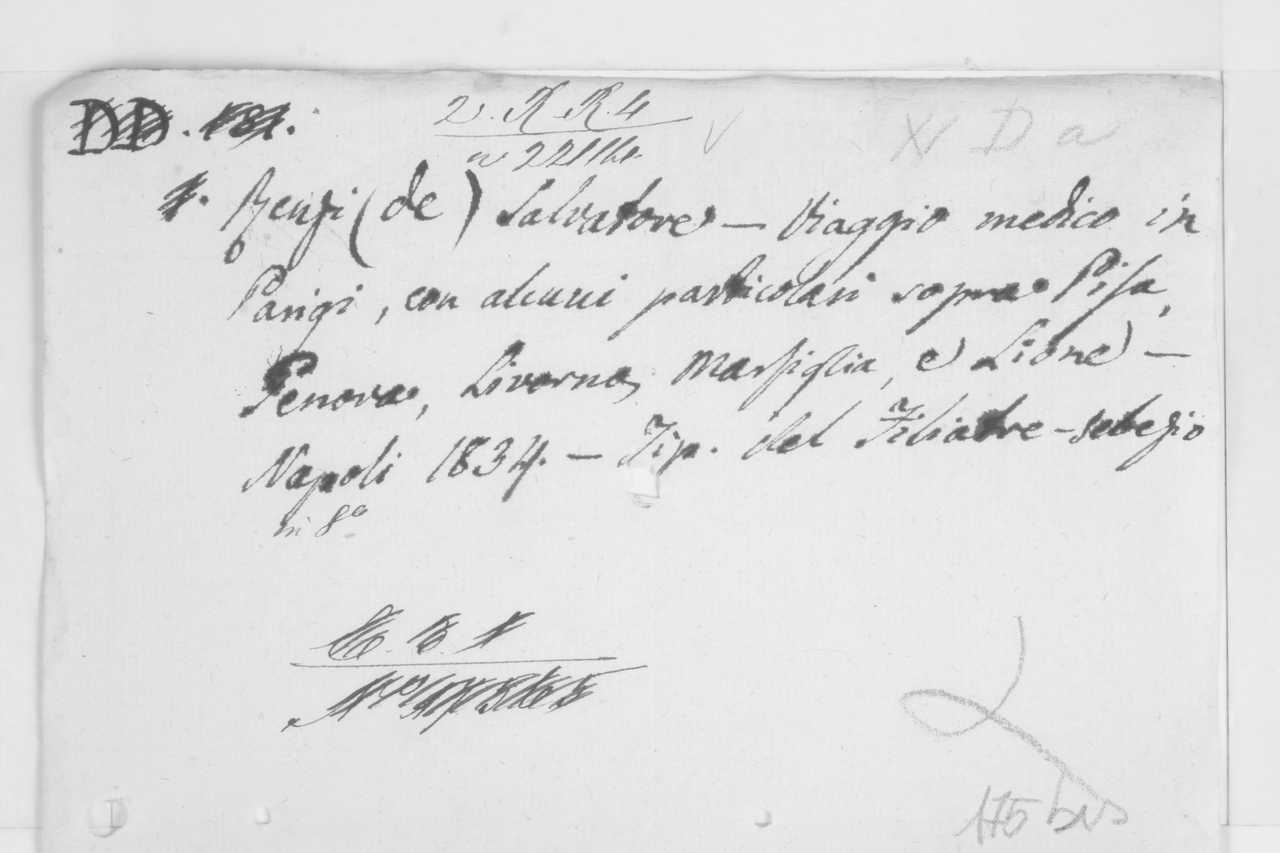 DD.
2. K. R. 4
XV D a
Renzi (de) Salvatore – Viaggio medico in
Parigi, con alcuni particolari sopra Pisa,
Genova, Livorno, Marsiglia, e Lione –
Napoli 1834. – Tip. del Filiatre-sebezio
in 8º
175 bis